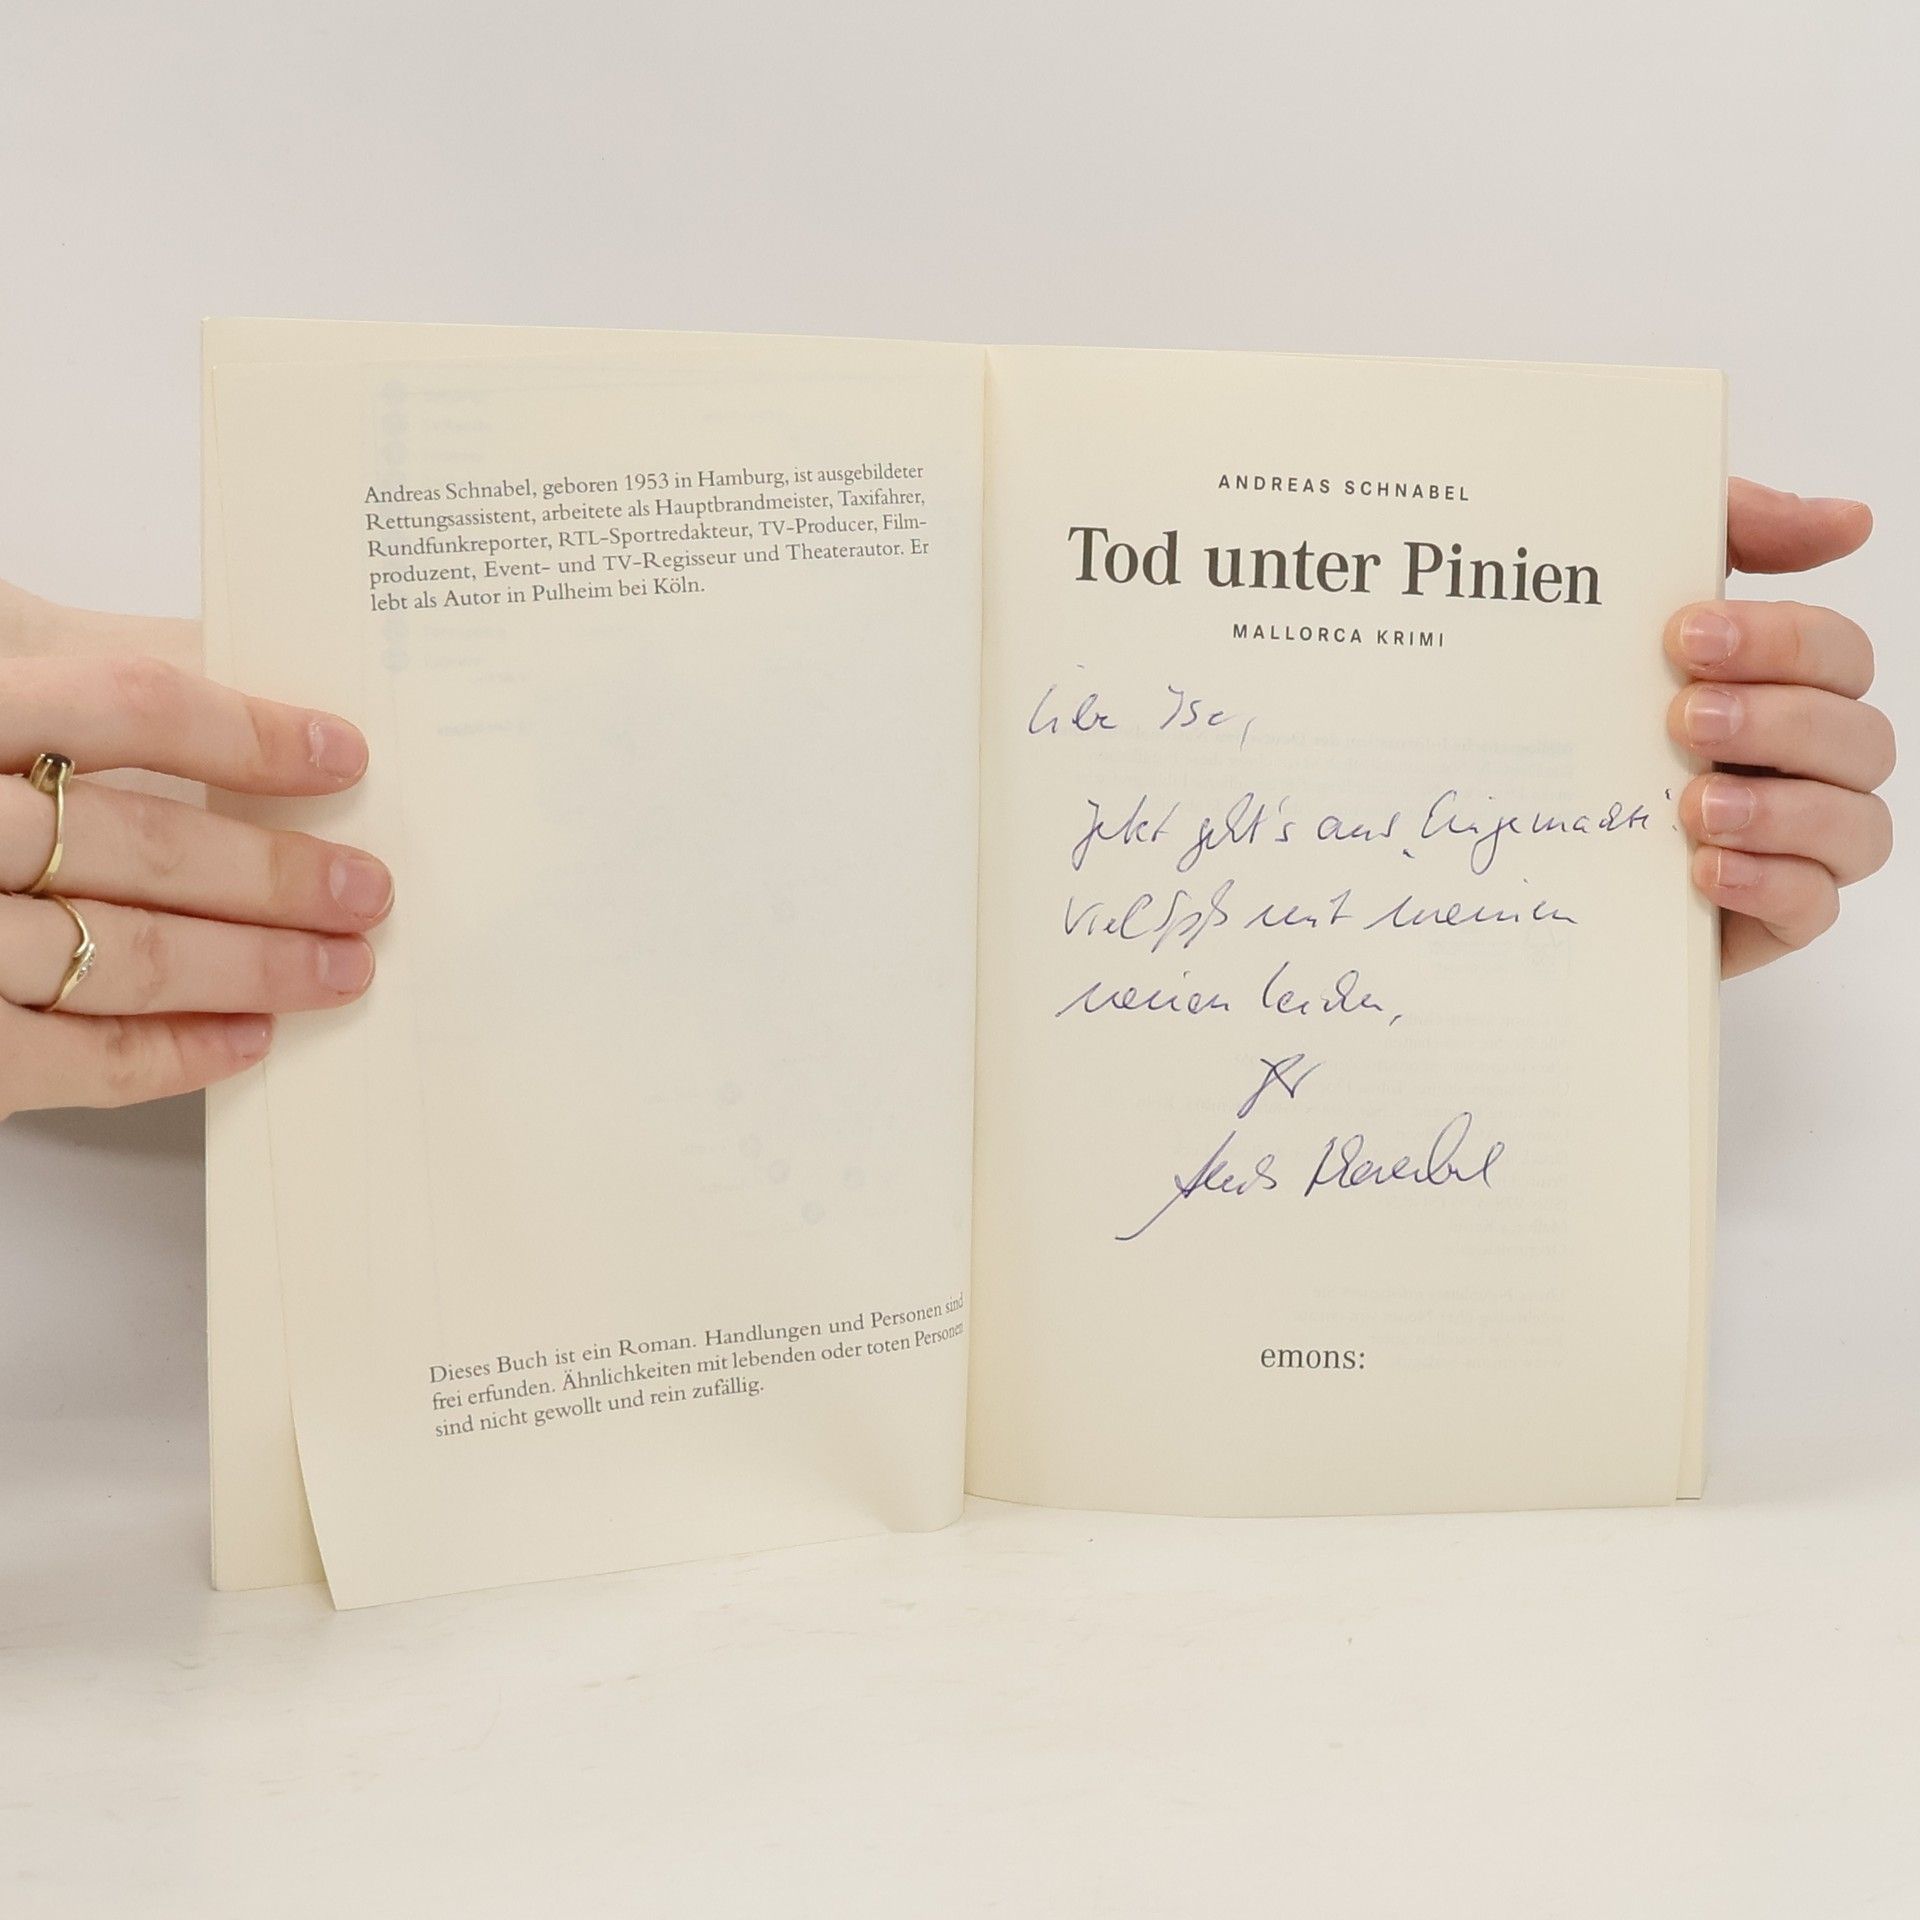 Andreas Schnabel, geboren 1953 in Hamburg, ist ausgebildeter
Rettungsassistent, arbeitete als Hauptbrandmeister, Taxifahrer,
Rundfunkreporter, RTL-Sportredakteur, TV-Producer, Film-
produzent, Event- und TV-Regisseur und Theaterautor. Er
lebt als Autor in Pulheim bei Köln.
Dieses Buch ist ein Roman. Handlungen und Personen sind
frei erfunden. Ähnlichkeiten mit lebenden oder toten Personen
sind nicht gewollt und rein zufällig.
ANDREAS SCHNABEL
Tod unter Pinien
MALLORCA KRIMI
Liebe
Jetzt geht's ans „Eingemachte“.
Viel Spaß mit meinen
neuen Leichen,
Ihr
Andreas Schnabel
emons: